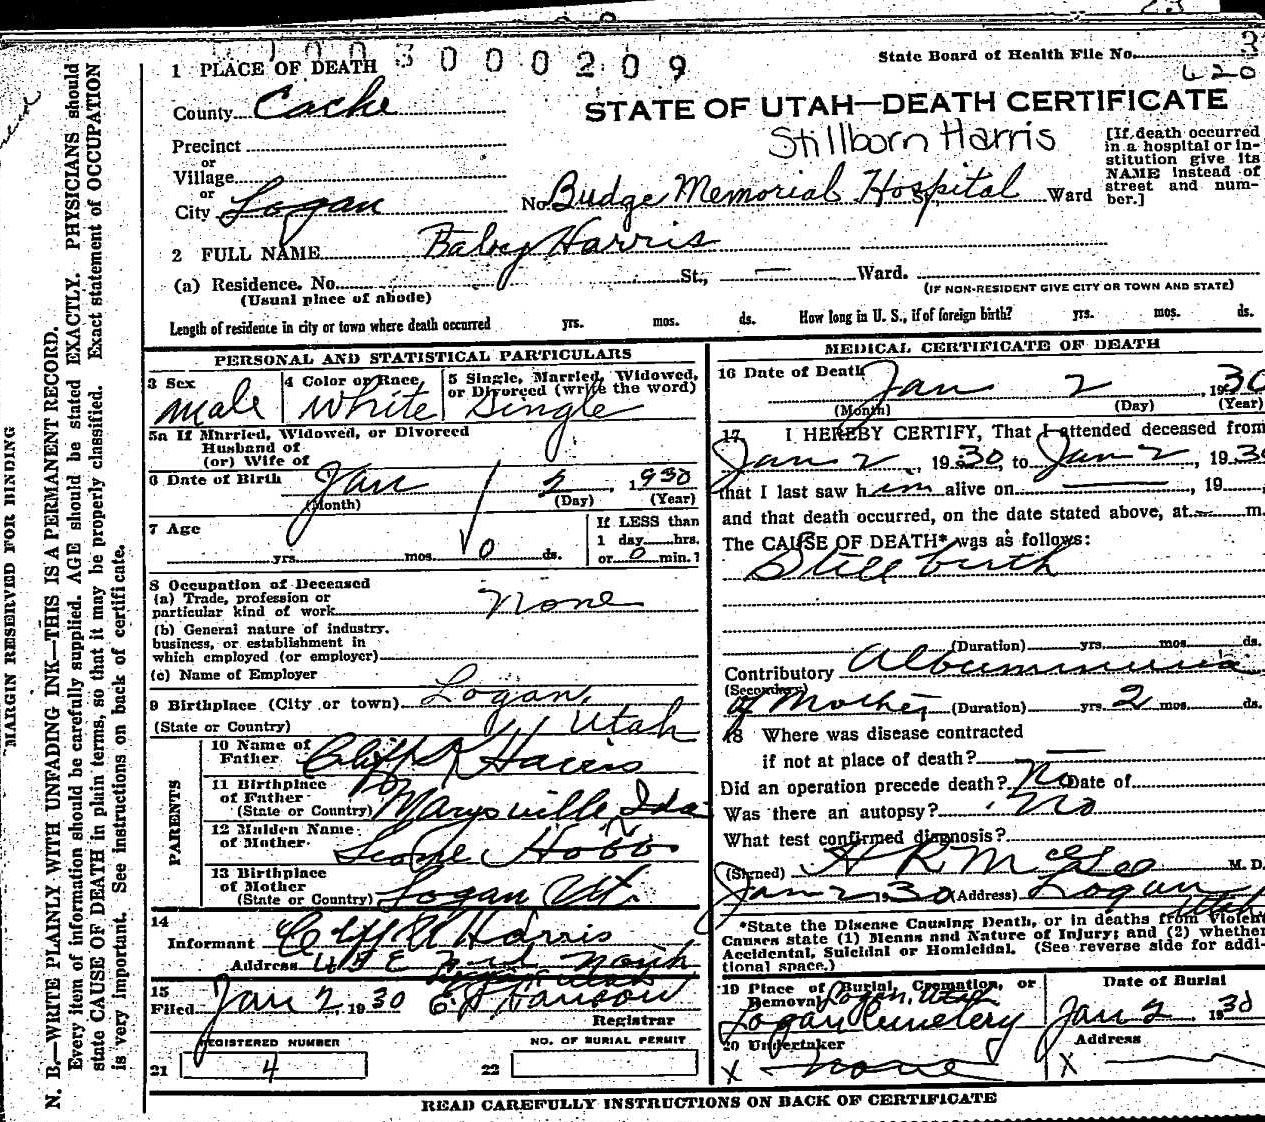 1003000209
State Board of Health File No. 3
620
1 PLACE OF DEATH
County Cache
STATE OF UTAH—DEATH CERTIFICATE
Stillborn Harris
Precinct
or
Village
or
City Logan
No. Budge Memorial Hospital St., Ward
[If death occurred
in a hospital or in-
stitution give its
NAME instead of
street and num-
ber.]
2 FULL NAME Baby Harris
(a) Residence. No. St., — Ward.
(Usual place of abode)
(IF NON-RESIDENT GIVE CITY OR TOWN AND STATE)
Length of residence in city or town where death occurred yrs. mos. ds. How long in U. S., if of foreign birth? yrs. mos. ds.
PERSONAL AND STATISTICAL PARTICULARS
3 Sex
male
4 Color or Race
White
5 Single, Married, Widowed,
or Divorced (write the word)
Single
5a If Married, Widowed, or Divorced
Husband of
(or) Wife of
6 Date of Birth Jan 2, 1930
(Month) (Day) (Year)
7 Age
yrs. mos. 0 ds.
If LESS than
1 day hrs.
or 0 min.?
8 Occupation of Deceased
(a) Trade, profession or
particular kind of work None
(b) General nature of industry,
business, or establishment in
which employed (or employer)
(c) Name of Employer
9 Birthplace (City or town) Logan,
(State or Country) Utah
PARENTS
10 Name of
Father Cliff R Harris
11 Birthplace
of Father
(State or Country) Marysville Ida
12 Maiden Name
of Mother Leone Hobbs
13 Birthplace
of Mother
(State or Country) Logan Ut.
14
Informant Cliff R Harris
Address E 3rd North
Logan Utah
15
Filed Jan 2, 1930
Registrar
REGISTERED NUMBER
21 4
NO. OF BURIAL PERMIT
22
MEDICAL CERTIFICATE OF DEATH
16 Date of Death Jan 2, 1930
(Month) (Day) (Year)
17 I HEREBY CERTIFY, That I attended deceased from
Jan 2, 1930, to Jan 2, 1930
that I last saw him alive on —, 19
and that death occurred, on the date stated above, at — m.
The CAUSE OF DEATH* was as follows:
Still birth
(Duration) yrs. mos. ds.
Contributory Albuminuria
(Secondary)
of Mother (Duration) yrs. 2 mos. ds.
18 Where was disease contracted
if not at place of death? —
Did an operation precede death? No Date of
Was there an autopsy? No
What test confirmed diagnosis?
(Signed) H R McGee M. D.
Jan 2 1930 (Address) Logan Utah
*State the Disease Causing Death, or in deaths from Violent
Causes state (1) Means and Nature of Injury; and (2) whether
Accidental, Suicidal or Homicidal. (See reverse side for addi-
tional space.)
19 Place of Burial, Cremation, or
Removal Logan, Utah
Logan Cemetery
Date of Burial
Jan 2, 1930
20 Undertaker
X none
Address
X —
READ CAREFULLY INSTRUCTIONS ON BACK OF CERTIFICATE
MARGIN RESERVED FOR BINDING
N. B.—WRITE PLAINLY WITH UNFADING INK—THIS IS A PERMANENT RECORD.
Every item of information should be carefully supplied. AGE should be stated EXACTLY. PHYSICIANS should
state CAUSE OF DEATH in plain terms, so that it may be properly classified. Exact statement of OCCUPATION
is very important. See instructions on back of certificate.